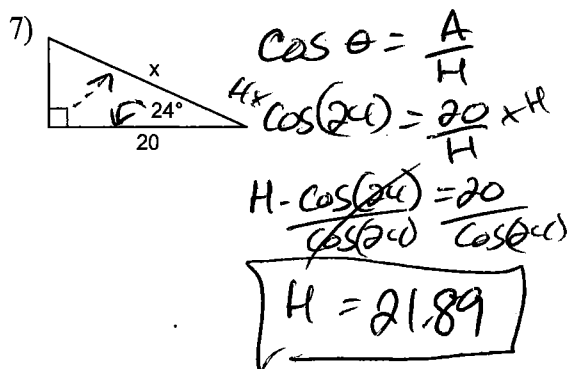 7)
x
24°
20
Cos θ = A/H
H× Cos(24) = 20/H × H
H · Cos(24)/Cos(24) = 20/Cos(24)
H = 21.89